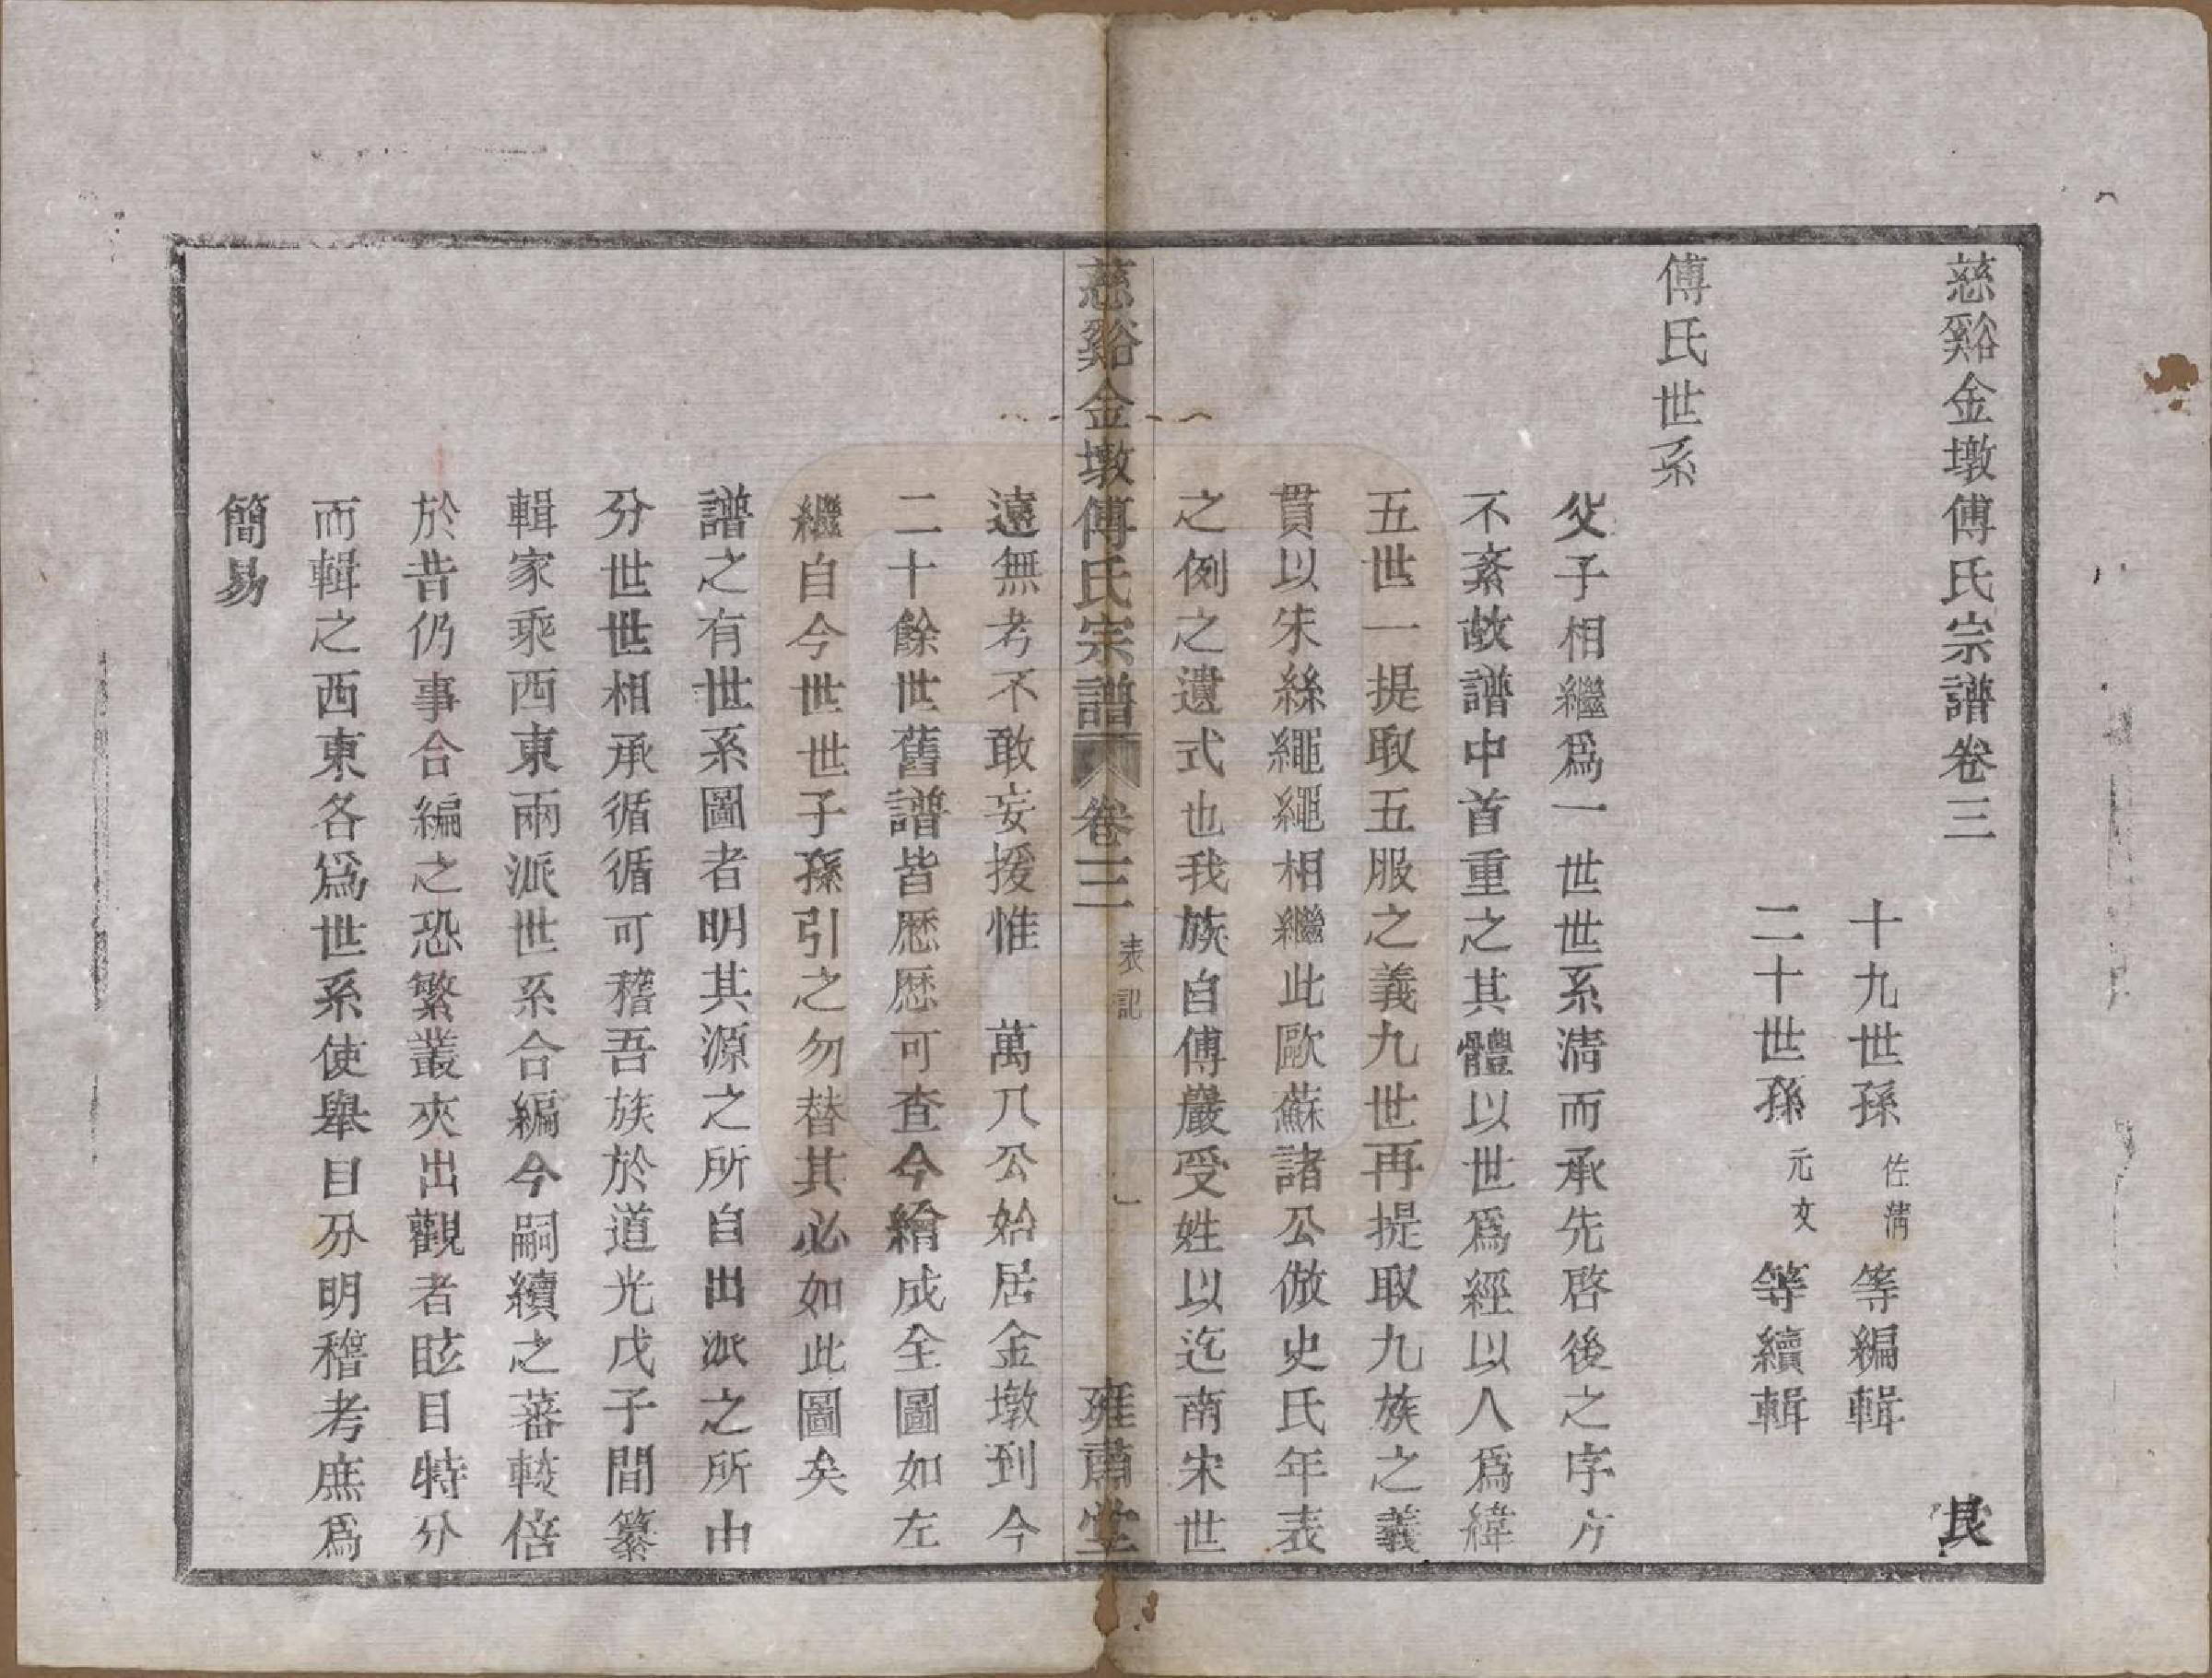 慈谿金墩傅氏宗譜卷三 艮
十九世孫佐清等編輯
二十世孫元文等續輯
傅氏世系
父子相繼爲一世世系清而承先啓後之序方
不紊故譜中首重之其體以世爲經以人爲緯
五世一提取五服之義九世再提取九族之義
貫以朱絲繩繩相繼此歐蘇諸公倣史氏年表
之例之遺式也我族自傅巖受姓以迄南宋世
慈谿金墩傅氏宗譜 卷三 表記 一 雍肅堂
遠無考不敢妄援惟 萬八公始居金墩到今
二十餘世舊譜皆歷歷可查今繪成全圖如左
繼自今世世子孫引之勿替其必如此圖矣
譜之有世系圖者明其源之所自出派之所由
分世世相承循循可稽吾族於道光戊子間纂
輯家乘西東兩派世系合編今嗣續之蕃較倍
於昔仍事合編之恐繁叢夾出觀者眩目特分
而輯之西東各爲世系使舉目分明稽考庶爲
簡易